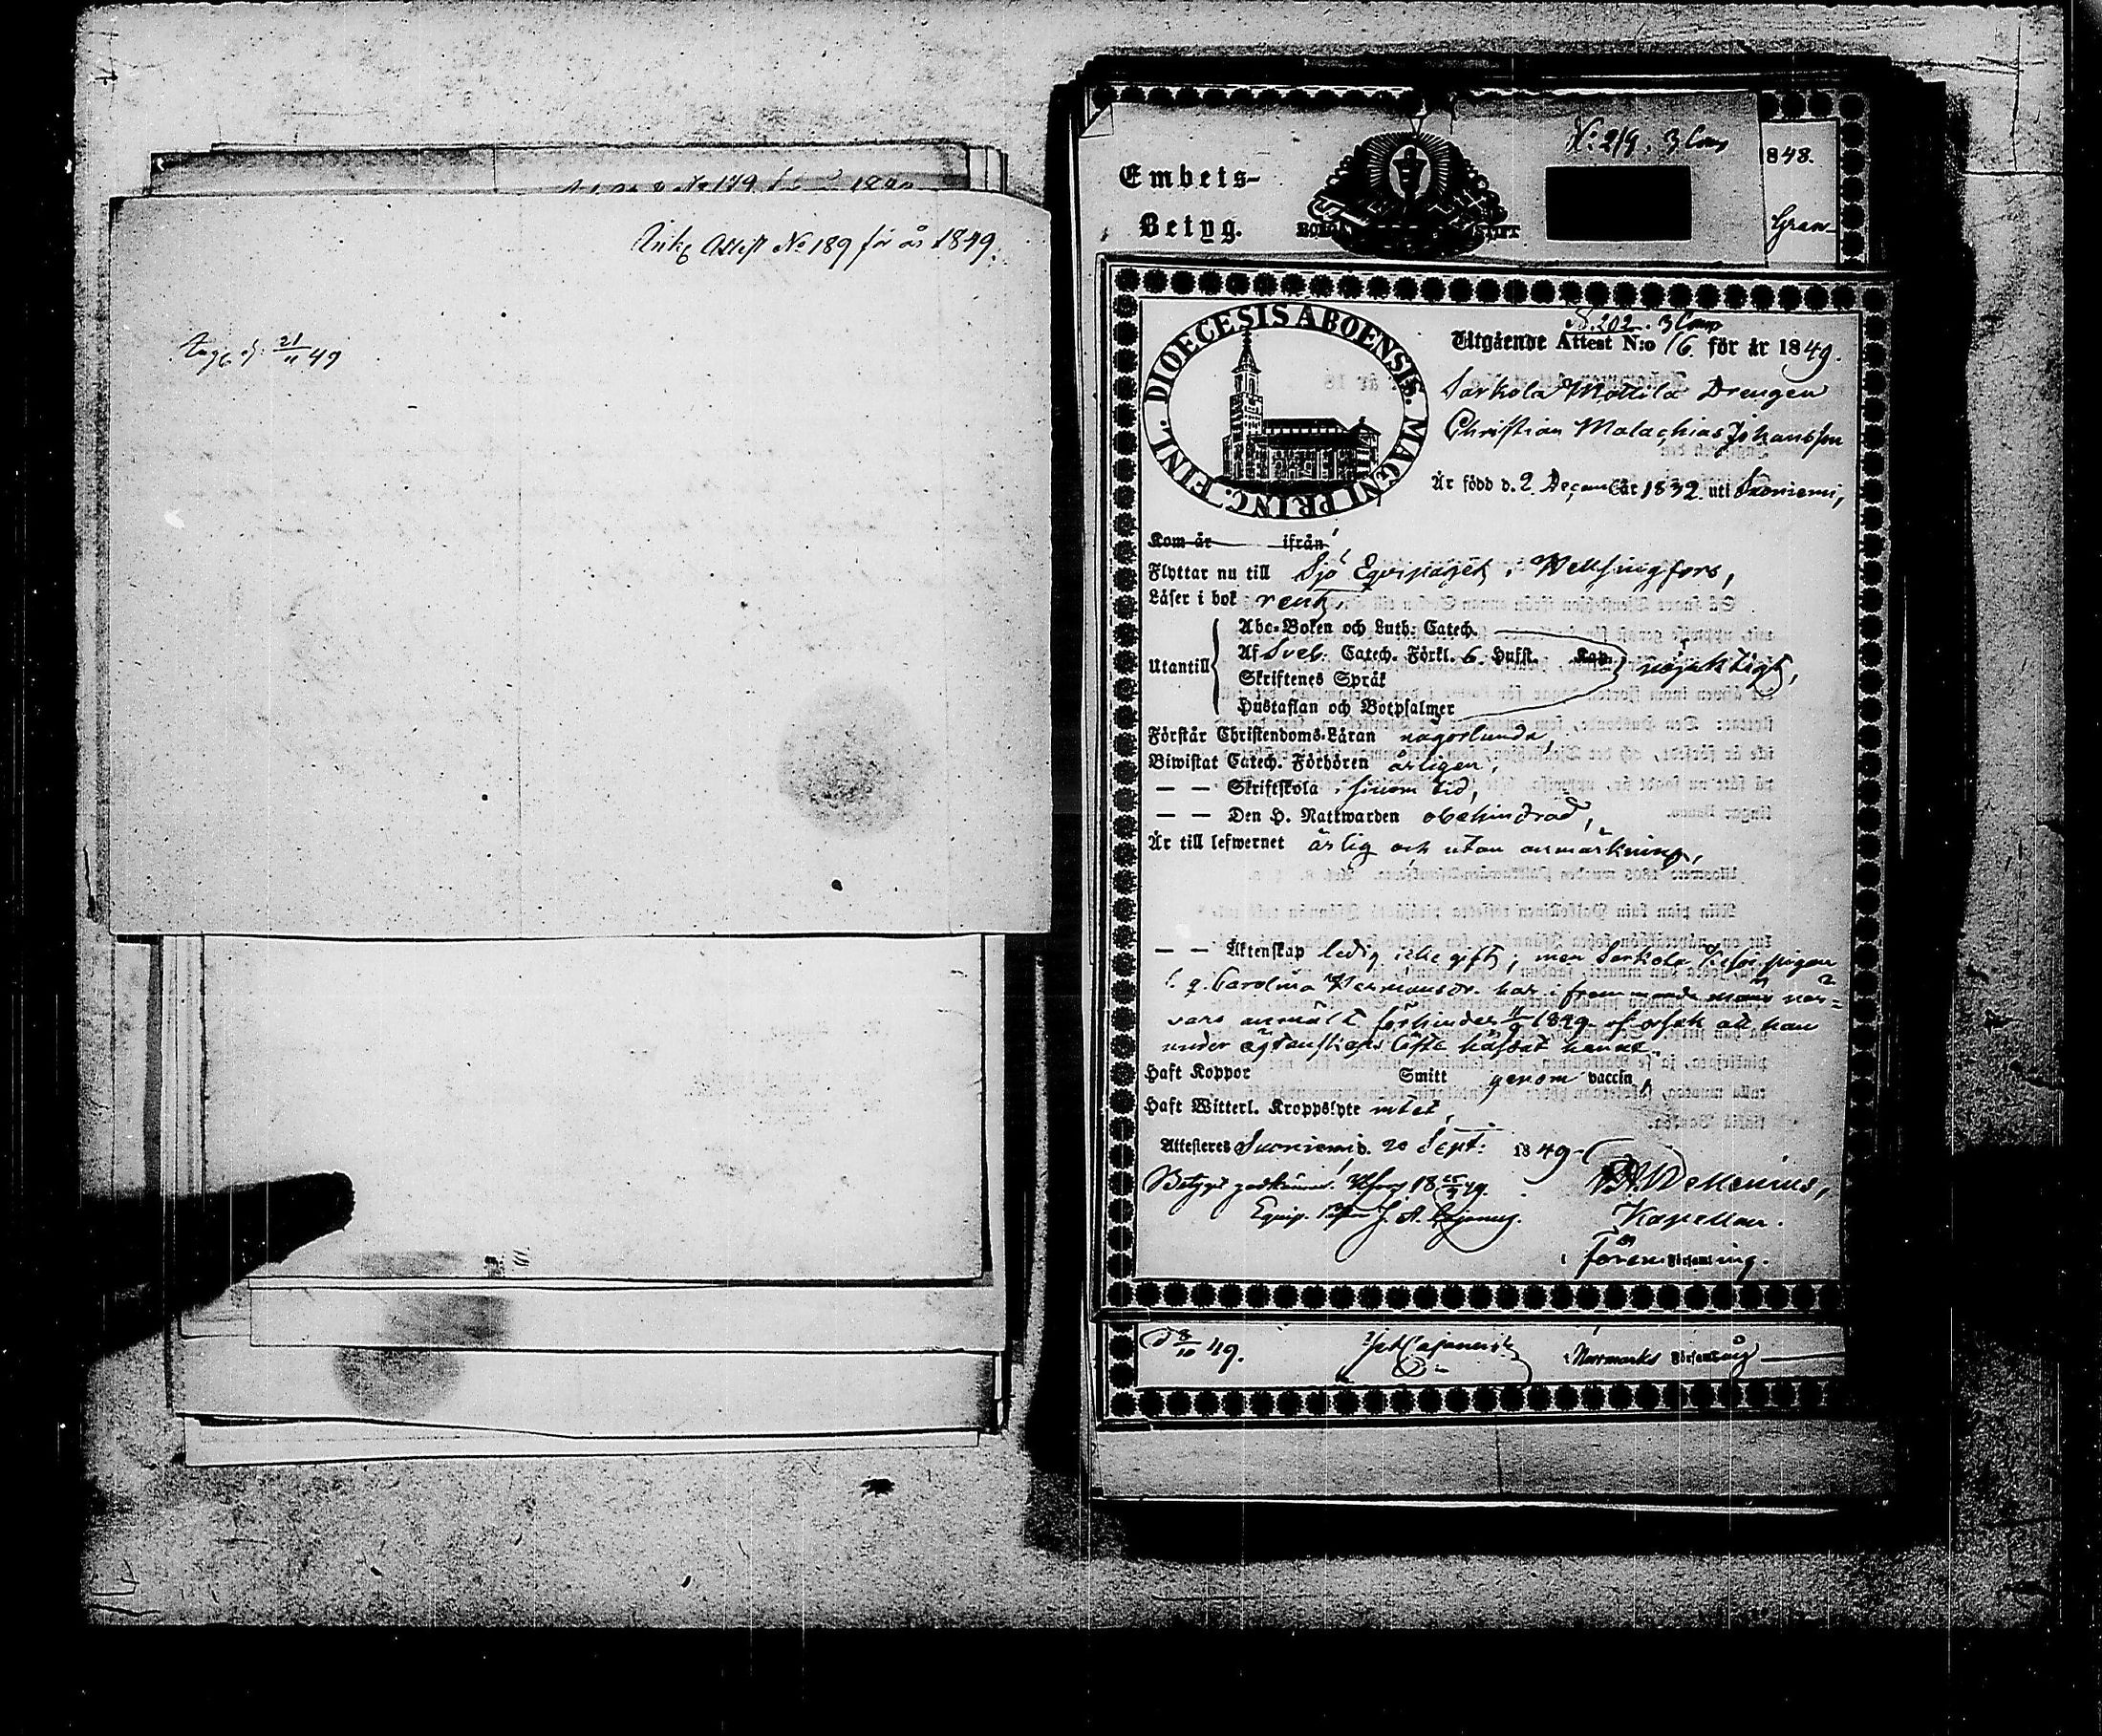 Attest No 189 för år 1849.
21/11 49
Embets-
Betyg.
N: 219. 3 Comp
1848.
Gran
DIOECESIS ABOENSIS. MAGNI PRINC. FINL.
N. 202. 3 Comp
Utgående Attest N:o 16. för år 1849.
Sarkola Mattila Drengen
Christian Malachias Johansson
Är född d. 2 Decemb år 1832 uti Suoniemi,
Kom år ifrån
Flyttar nu till Sjö Equipaget i Helsingfors,
Läser i bok rent,
Abc-Boken och Luth: Catech.
Utantill Af Sveb. Catech. Förkl. 6. Hufst. Kap. nöjaktigt,
Skriftenes Språk
Hustaflan och Botpsalmer
Förstår Christendoms-Läran någorlunda,
Biwistat Catech. Förhören årligen,
— — Skriftskola i sinom tid,
— — Den H. Nattwarden obehindrad,
Är till lefwernet ärlig och utan anmärkning,
— — Äktenskap ledig icke gift, men Sarkola pigan
Carolina Hermansdr. har i frammande mäns när=
varo anmält förhinder 11/9 1849 af orsak att han
under äqtenskaps löfte häfdat henne.
Haft Koppor Smitt genom vaccin,
Haft Witterl. Kroppslyte intet,
Attesteres Suoniemi d. 20 Sept: 1849.
Betyget godkännes. Hfors 18 49.
Equip. J. A. Cajanus.
Kapellan.
i Församling.
d 8/10 49.
i Norrmarks Församling